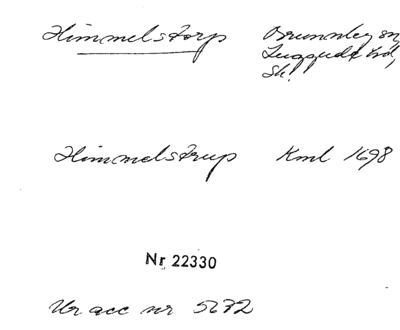 Himmelstorp Brunnby sn
Luggude hd,
Sk.
Himmelstrup Kml 1698
Nr 22330
Ur acc nr 5672